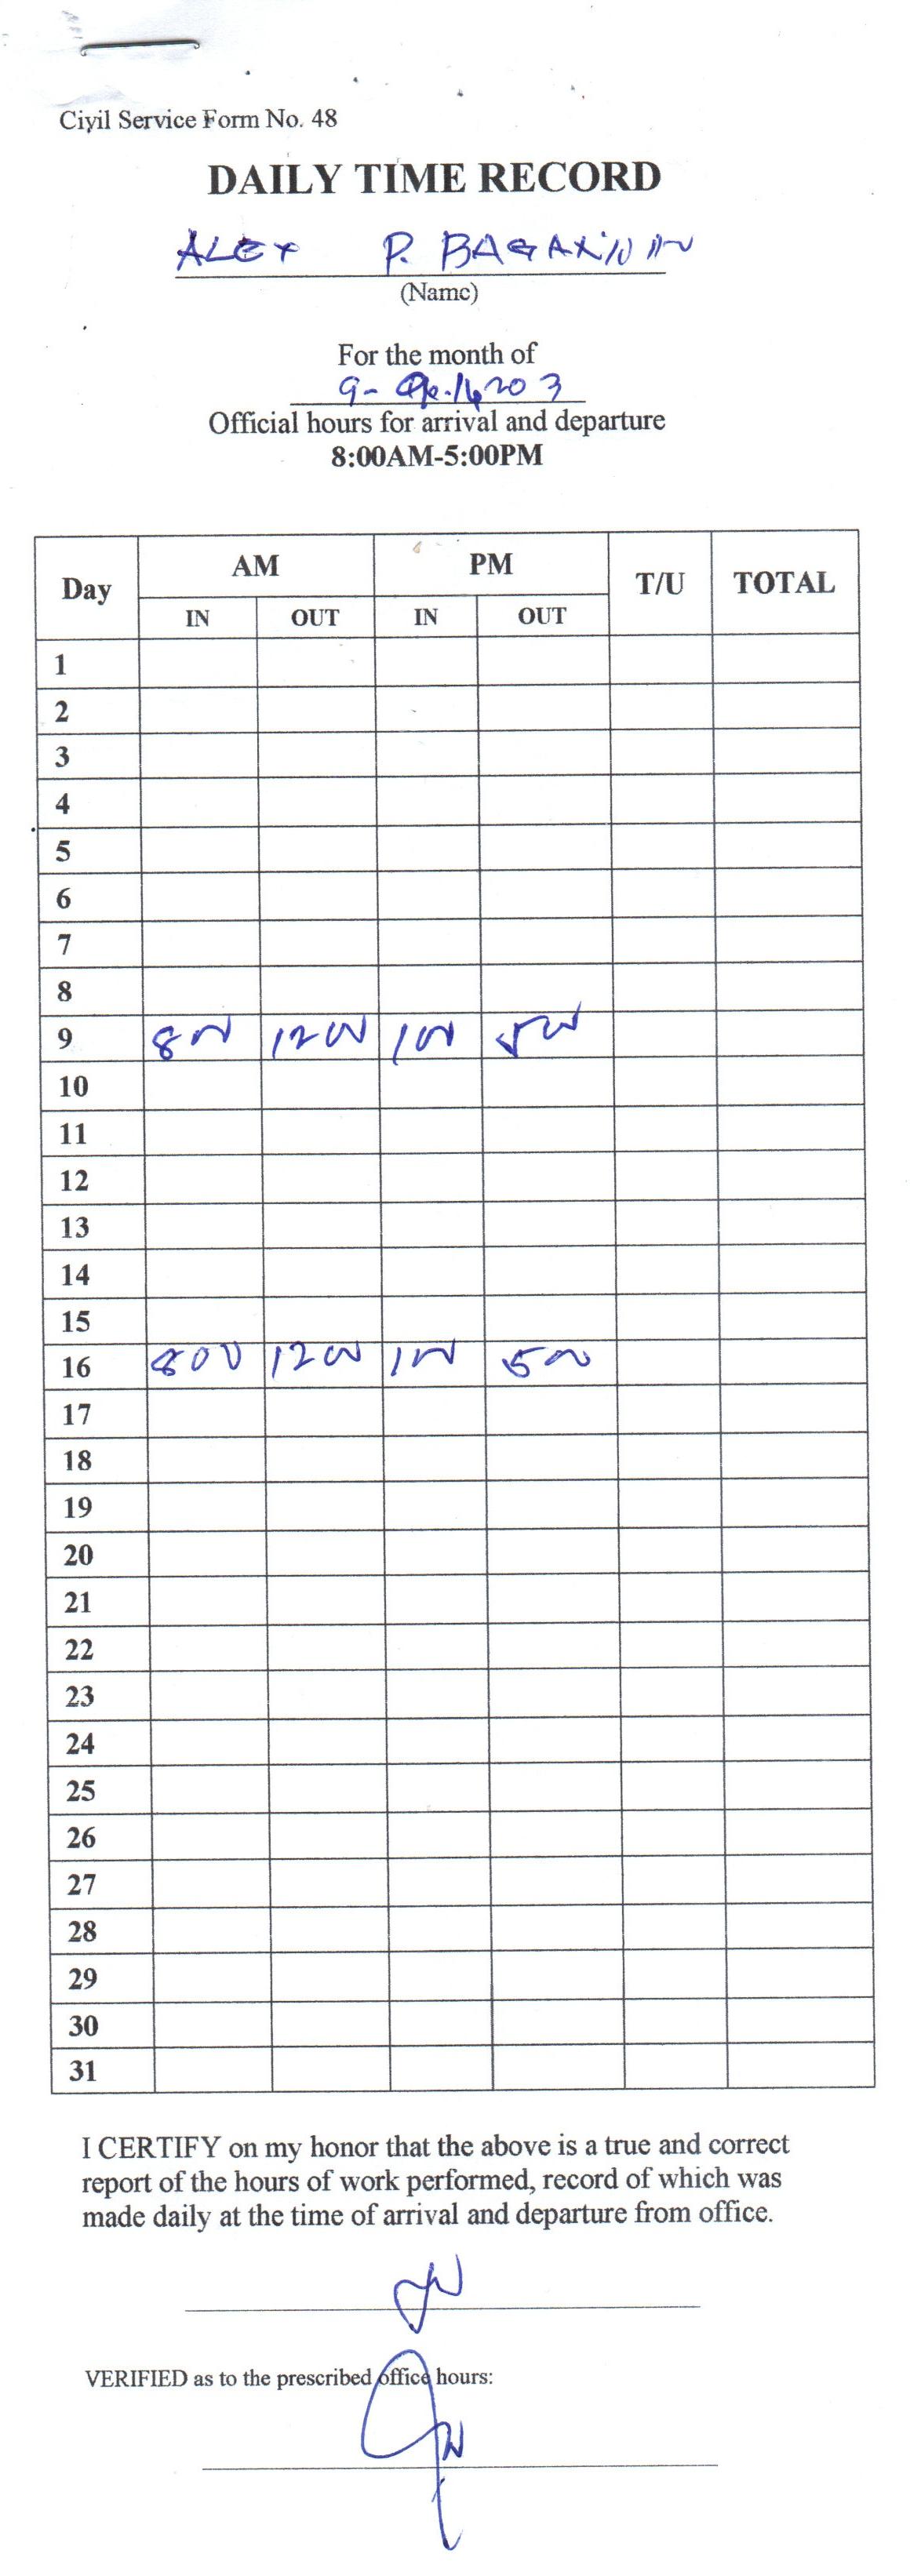 Civil Service Form No. 48
DAILY TIME RECORD
ALEX P.
(Name)
For the month of
Official hours for arrival and departure
8:00AM-5:00PM
Day AM PM T/U TOTAL
IN OUT IN OUT
1
2
3
4
5
6
7
8
9 800 1200 100 500
10
11
12
13
14
15
16 800 1200 100 500
17
18
19
20
21
22
23
24
25
26
27
28
29
30
31
I CERTIFY on my honor that the above is a true and correct
report of the hours of work performed, record of which was
made daily at the time of arrival and departure from office.
VERIFIED as to the prescribed office hours: